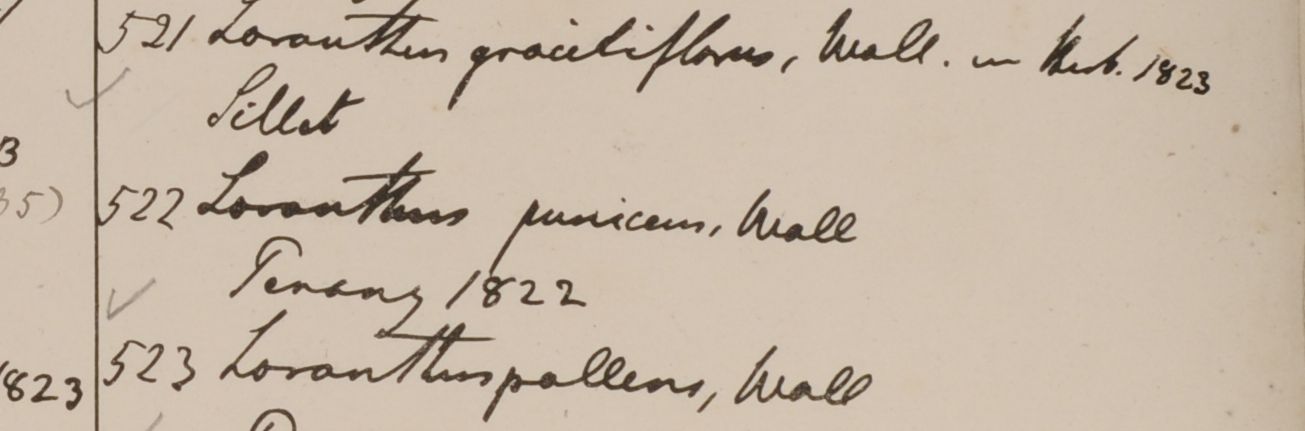 521 Loranthus graciliflorus, Wall. in Herb. 1823
Sillet
3
35)
522 Loranthus puniceus, Wall
Penang 1822
1823
523 Loranthus pallens, Wall